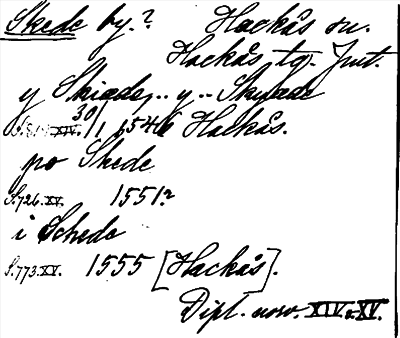 Skede by.? Hackås sn.
Hackås tg. Jmt.
y Skiæde, .. y .. Skyæde
XIV. 30/1 1546 Hackås.
po Skede
S.726.XV. 1551?
i Schede
S.773.XV. 1555 [Hackås].
Dipl. norv. XIV o. XV.